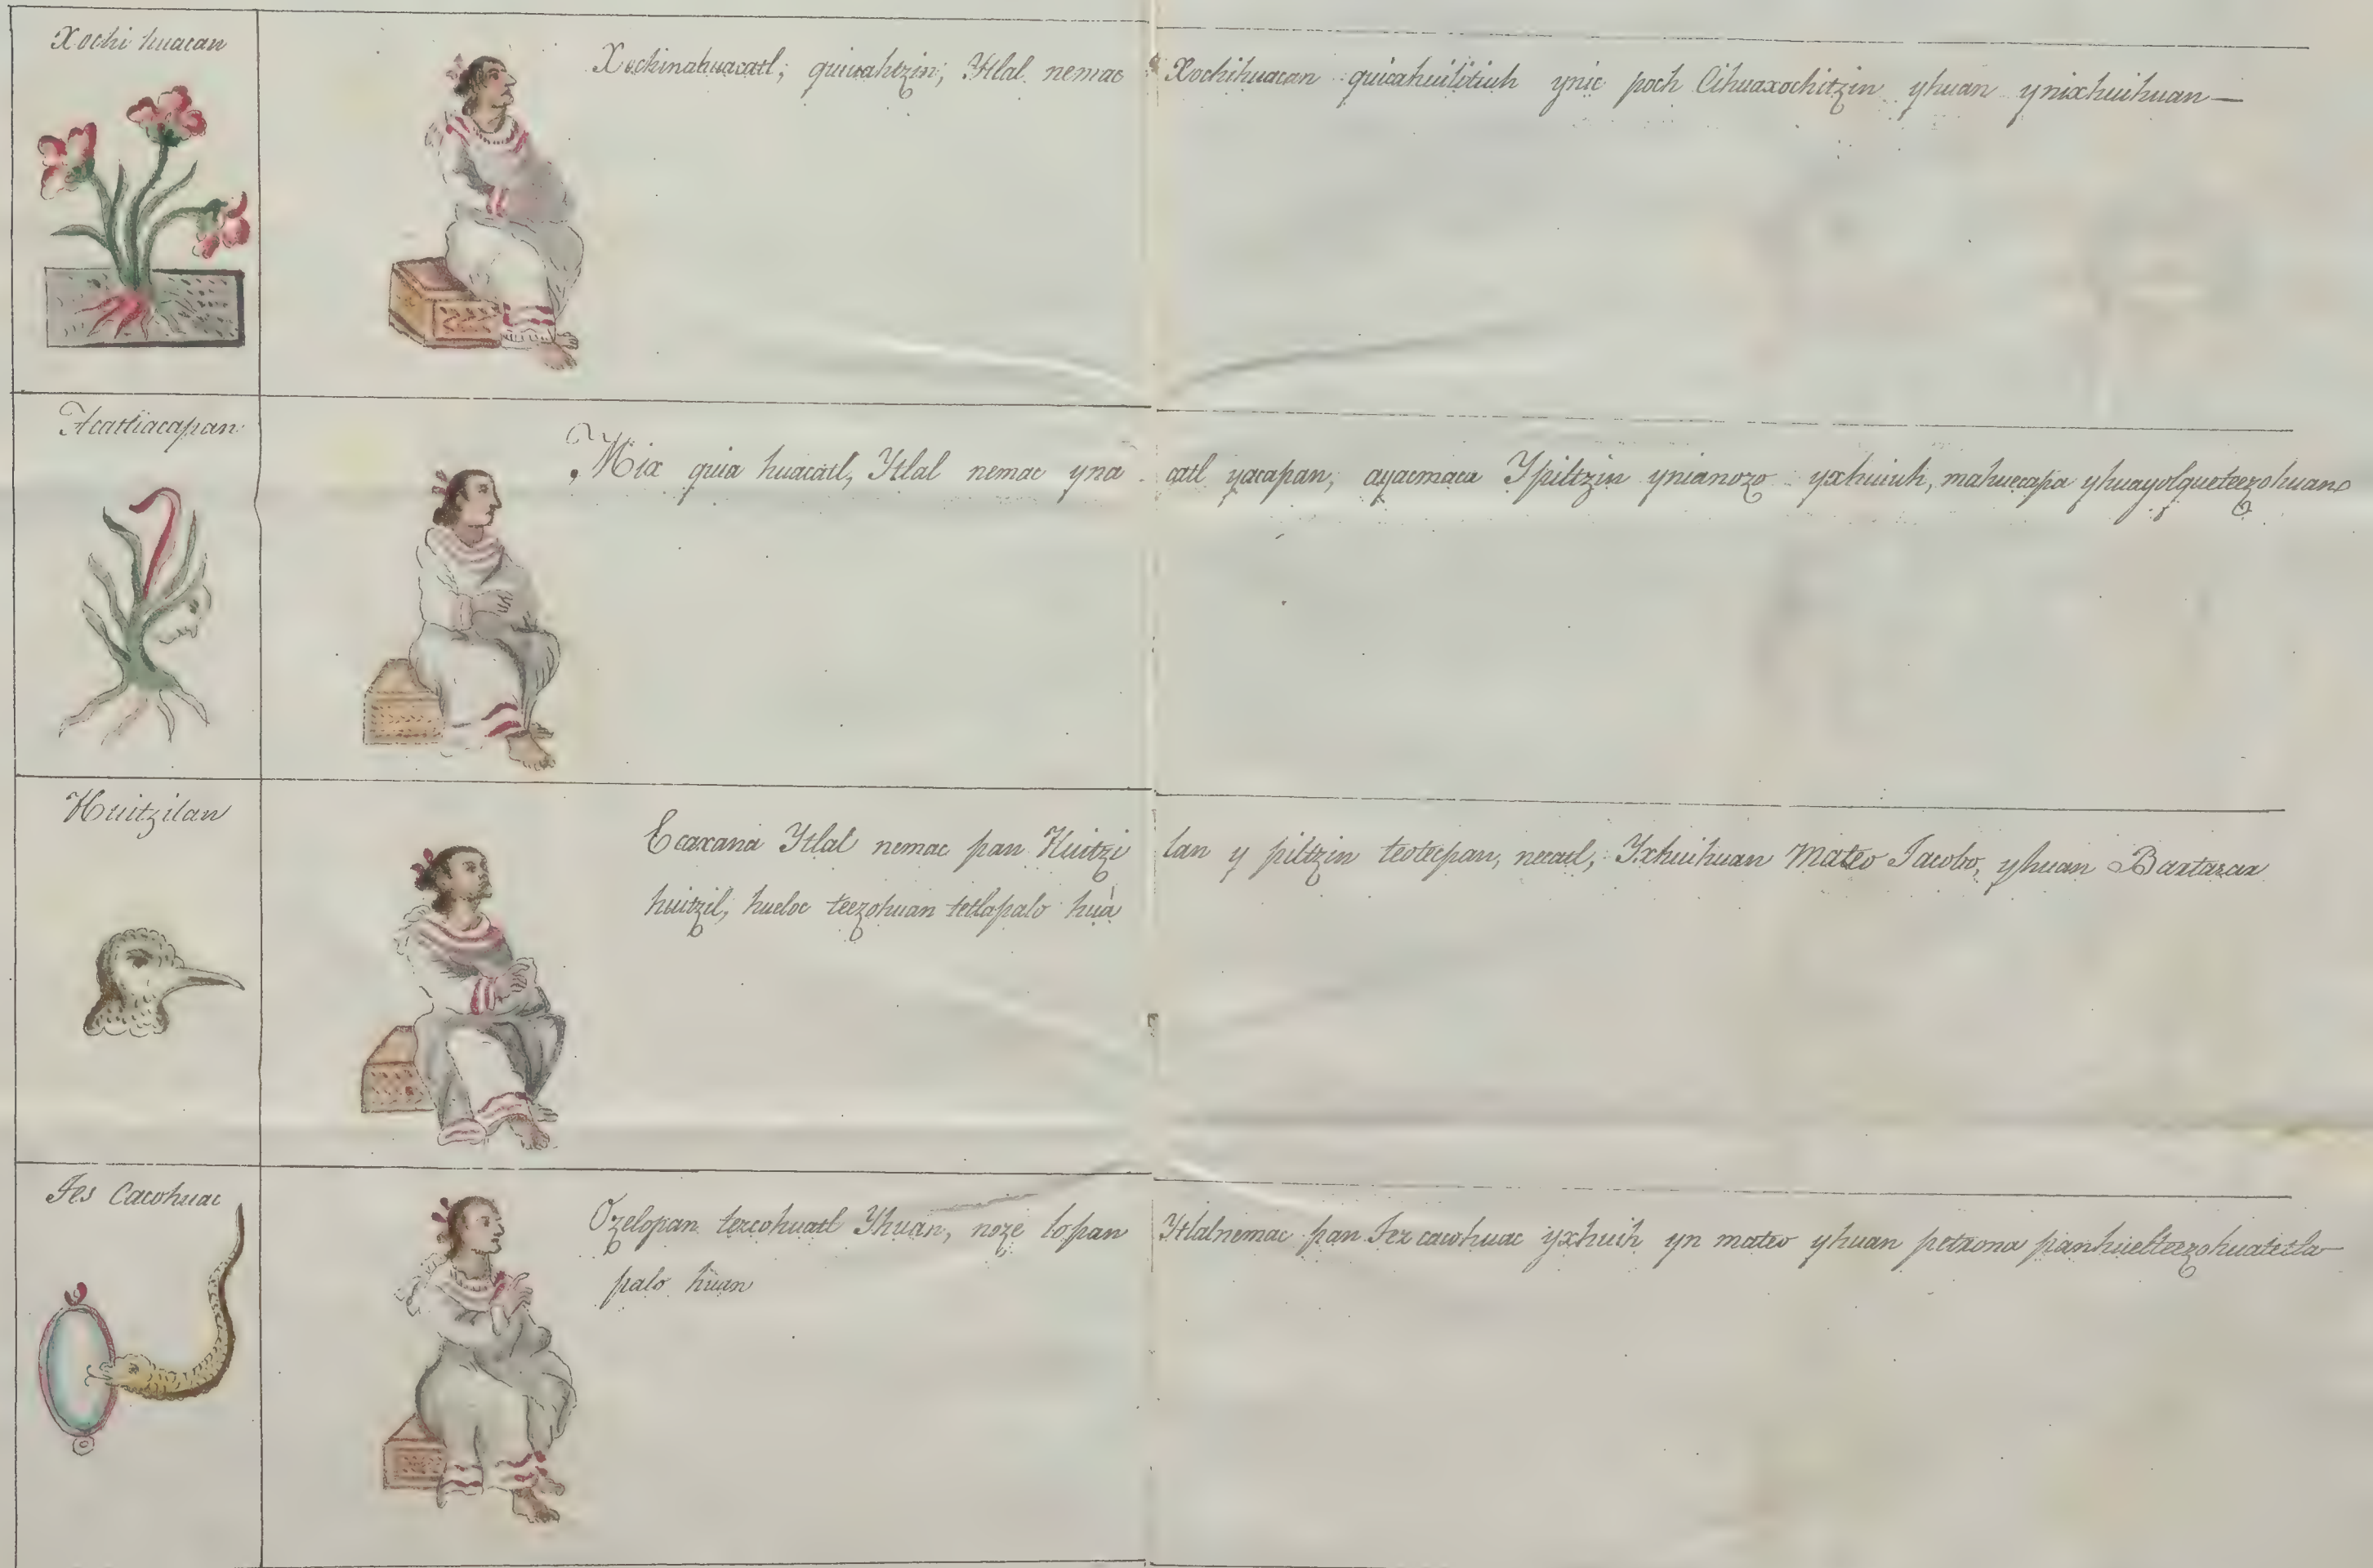 Xochi huacan
Xochinahuacatl; quiuahtzin; Ytlal nemac Xochihuacan quicahuilitiuh ynic poch Cihuaxochitzin yhuan ynixhuihuan—
Acatliacapan
Mix quia huacatl, Ytlal nemac yna catl yacapan, ayacmaca Ypiltzin ynianozo yxhuiuh, mahuecapa yhuayolqueteezohuano
Huitzilan
Ecaxana Ytlal nemac pan Huitzi lan y piltzin teotecpan, necatl, Yxhuihuan Mateo Jacobo, yhuan Baxtaxax
huitzil, hueloc teezohuan tetlapalo huà
Tes Cacohuac
Ozelopan tezcohuatl Yhuan, noze lopan Ytlalnemac pan Tez cacohuac yxhuih yn mateo yhuan petxona panhuelteezohuatetla
palo huan